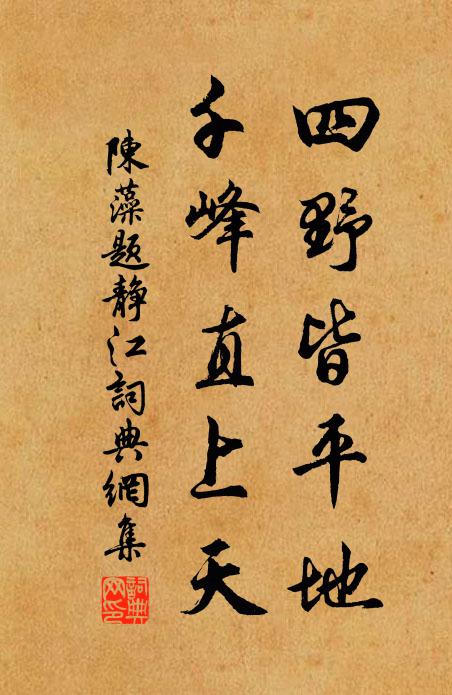 四野皆平地
千峰直上天
陳藻題靜江詞典網集
詞典
网印